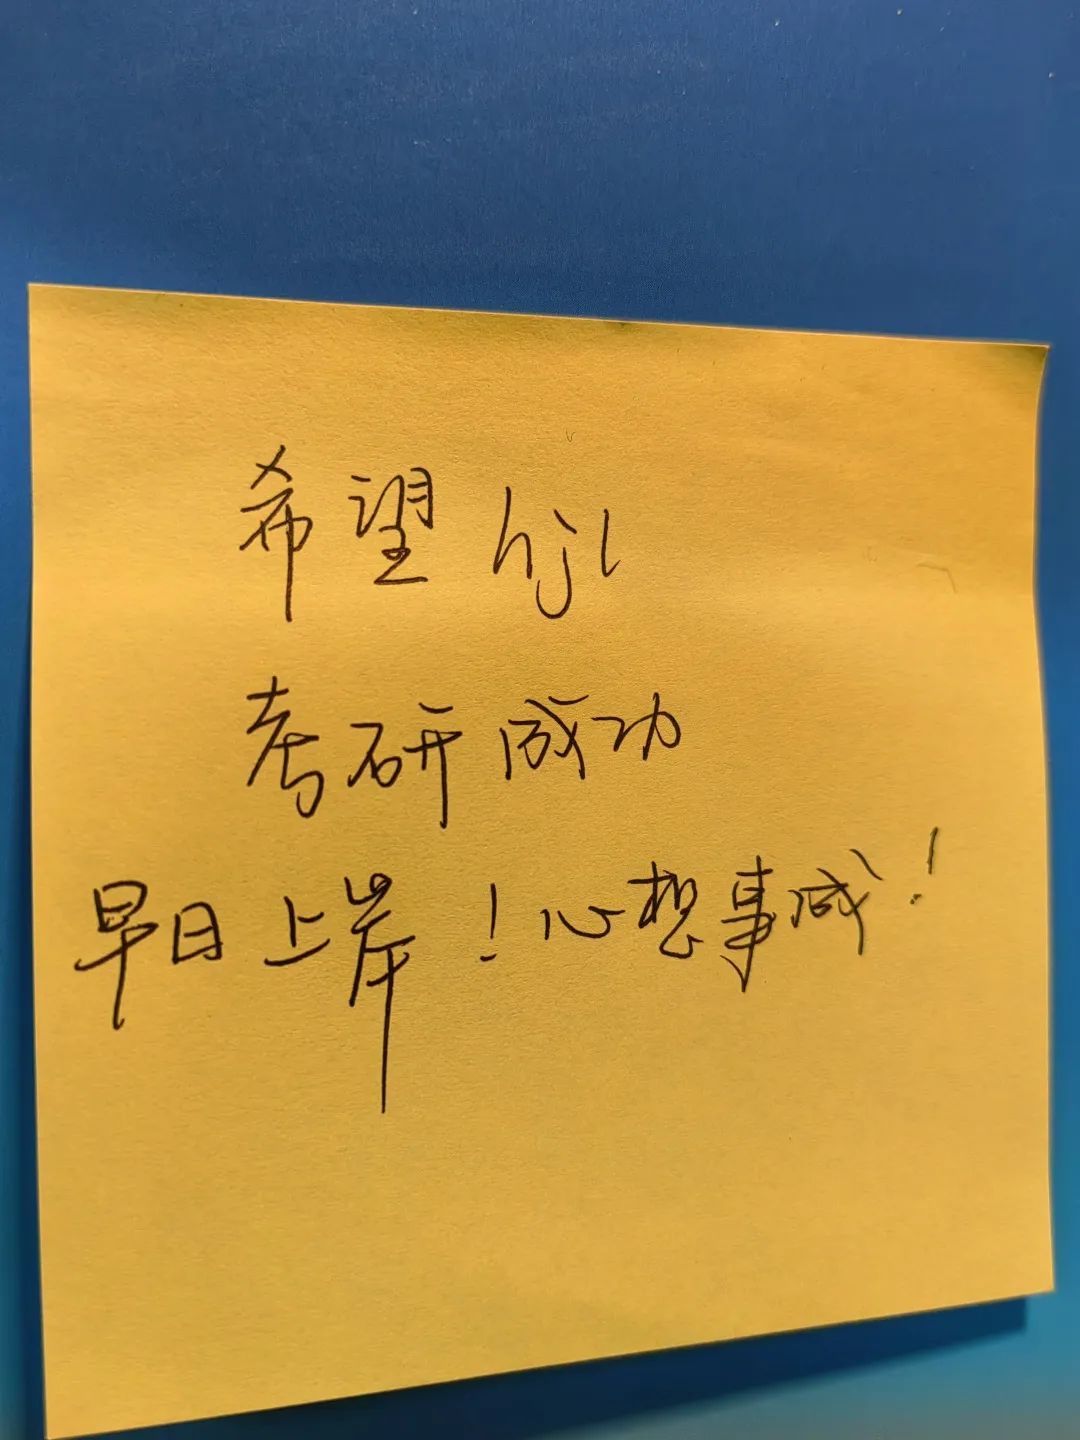 希望hjl
考研成功
早日上岸！心想事成！